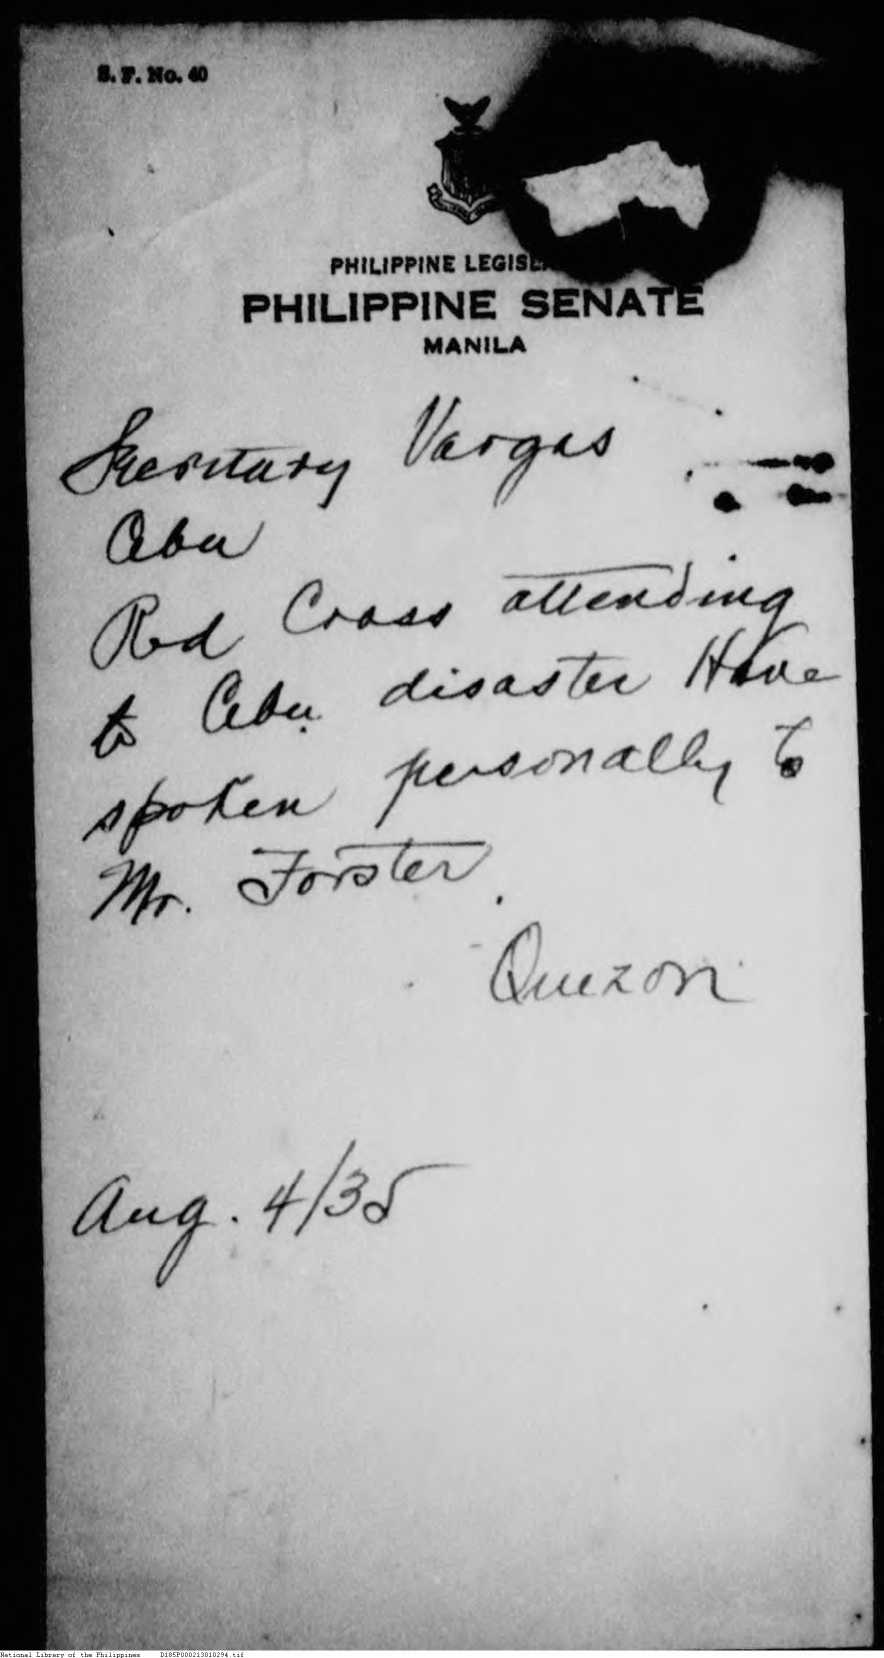 S. F. No. 40
PHILIPPINE LEGISL
PHILIPPINE SENATE
MANILA
Secretary Vargas
Cebu
Red Cross attending
to Cebu disaster Have
spoken personally to
Mr. Forster.
Quezon
Aug. 4/35
National Library of the Philippines D185P000213010294.tif